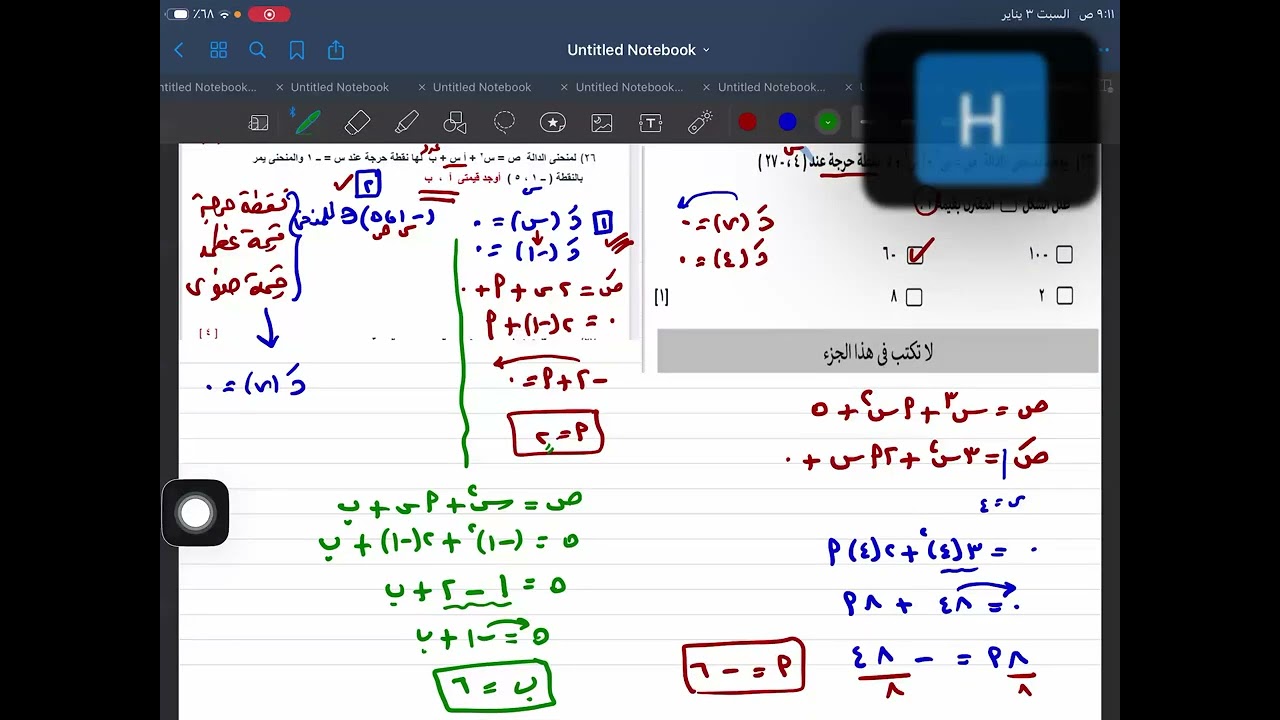 ٩:١١ ص السبت ٣ يناير
٪٦٨
Untitled Notebook
ntitled Notebook...
Untitled Notebook
Untitled Notebook
Untitled Notebook...
Untitled Notebook...
H
نقطة حرجة عند (٤، -٢٧)
دَ (س) = ٠
دَ (٤) = ٠
١٠٠
٦٠
٢
٨
[١]
لا تكتب في هذا الجزء
ص = س٣ + أ س٢ + ٥
صَ = ٣س٢ + ٢أ س + ٠
س = ٤
٠ = ٣(٤)٢ + ٢(٤) أ
٠ = ٤٨ + ٨أ
٨أ = - ٤٨
٨ ٨
أ = - ٦
٢٦) لمنحنى الدالة ص = س٢ + أ س + ب لها نقطة حرجة عند س = – ١ والمنحنى يمر
بالنقطة (– ١، ٥) أوجد قيمتي أ ، ب
١ دَ (س) = ٠
دَ (-١) = ٠
صَ = ٢س + أ + ٠
٠ = ٢(-١) + أ
-٢ + أ = ٠
أ = ٢
٢ (-١، ٥) ∋ للمنحنى
س ص
نقطة حرجة
قيمة عظمى
قيمة صغرى
دَ (س) = ٠
[٤]
ص = س٢ + أ س + ب
٥ = (-١)٢ + ٢(-١) + ب
٥ = ١ - ٢ + ب
٥ = -١ + ب
ب = ٦